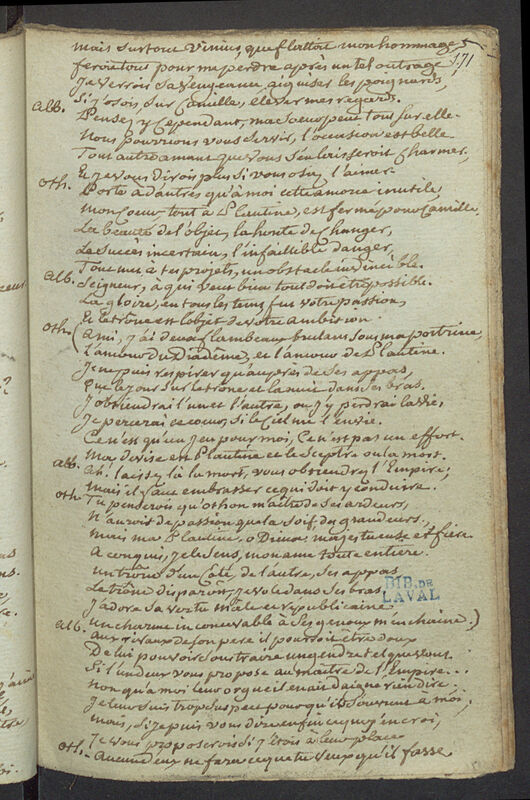 171
mais surtout Vinius, que flattoit mon hommage,
feroit tout pour me perdre après un tel outrage,
Je verrois sa vengeance aiguiser les poignards,
Si j'osois, sur Camille, elever mes regards.
alb. Pensez y cependant, ma soeur peut tout sur elle.
Nous pourrions vous servir, l'occasion est belle
Tout autre amant que vous s'en laisseroit charmer,
Et je vous dirois plus si vous osiez l'aimer.
oth. Porte a d'autres qu'à moi cette amorce inutile
mon Coeur, tout à Plautine, est fermé pour Camille.
La beauté de l'objet, la honte de changer,
Le succès incertain, l'infaillible danger,
Tout met à tes projets, un obstacle invincible.
alb. Seigneur, à qui veut bien tout doit être possible.
La gloire, en tous les tems, fut votre passion,
Et le trône est l'objet de votre ambition.
oth. (ami, j'ai deux flambeaux brulans sous ma poitrine,
L'amour du Diadême, et l'amour de Plautine.
Je ne puis respirer qu'auprès de ses appas,
Que le jour sur le trône et la nuit dans ses bras.
J'obtiendrai l'un et l'autre, ou j'y perdrai la vie,
Je percerai ce coeur, si le Ciel me l'envie.
Ce n'est qu'un jeu pour moi, ce n'est pas un effort.
Ma devise est Plautine et le sceptre ou la mort.
alb. Ah! laissez là la mort, vous obtiendrez l'Empire;
mais il faut embrasser ce qui doit y conduire.
oth. Tu penserois qu'othon maître de ses ardeurs,
N'auroit de passion que la soif des grandeurs.
mais ma Plautine, o Dieux, majestueuse et fière
a conquis, je le sens, mon ame toute entière.
un trône d'un coté, de l'autre, ses appas
Le trône disparoit, je vole dans ses bras,
J'adore sa vertu male et republicaine
un charme inconcevable à ses genoux m'enchaine.)
alb. aux rivaux de son pere il pourroit être doux
De lui pouvoir soustraire un gendre tel que vous.
Si l'un deux vous propose au maitre de l'Empire...
Non qu'à moi leur orgueil en ait daigné rien dire.
Je leur suis trop suspect pour qu'ils s'ouvrent à moi;
mais, si je puis vous dire enfin ce que j'en croi,
Je vous proposerois si j'étois à leur place
oth. aucun d'eux ne fera ce que tu veux qu'il fasse
BIB. DE
LAVAL